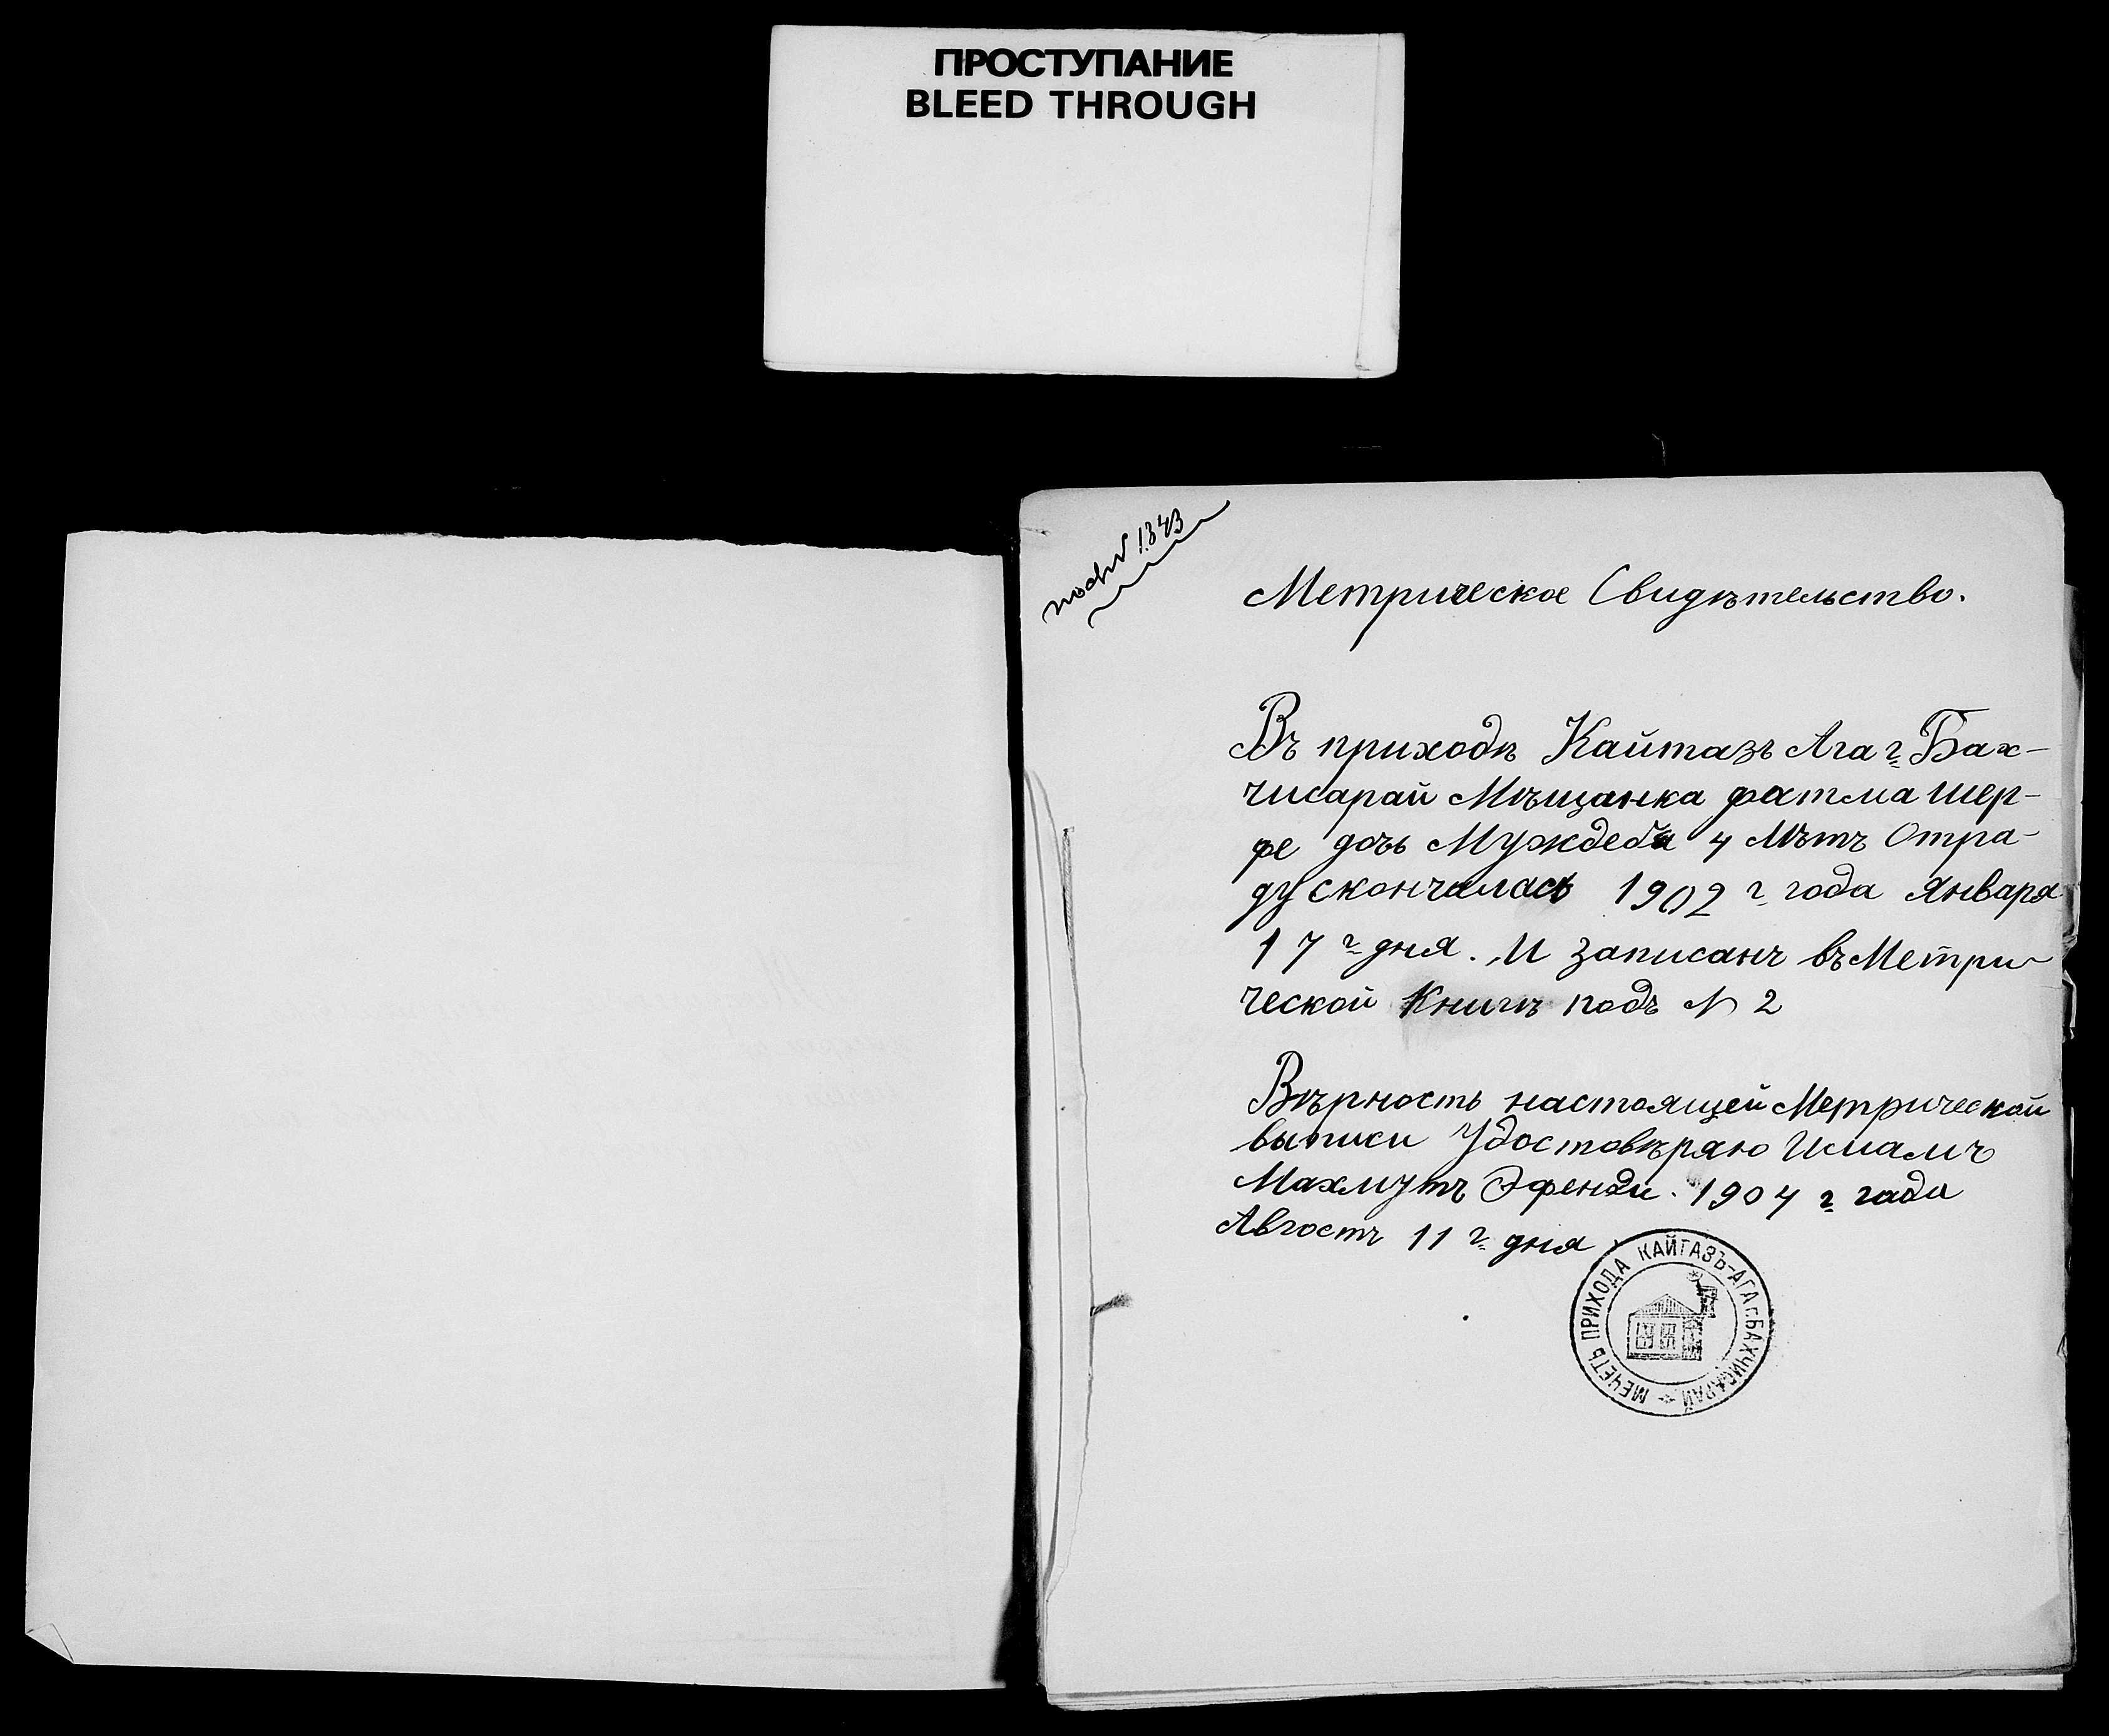 ПРОСТУПАНИЕ
BLEED THROUGH
1343
Метрическое Свидѣтельство.
Въ приходѣ Кайтазъ Ага г. Бах-
чисарай Мѣщанка фатма шер-
фе дочь Муждеба 4 Лѣтъ Отра-
ду скончалась 1902 г. года Января
17 г. дня. И записанъ въ Метри-
ческой Книгѣ подъ N 2
Вѣрность настоящей Метрической
выписи Удостовѣряю Имамъ
Махмутъ Эфенди. 1904 г. года
Августъ 11 г. дня
МЕЧЕТЬ ПРИХОДА КАЙТАЗЪ-АГА Г. БАХЧИСАРАЙ